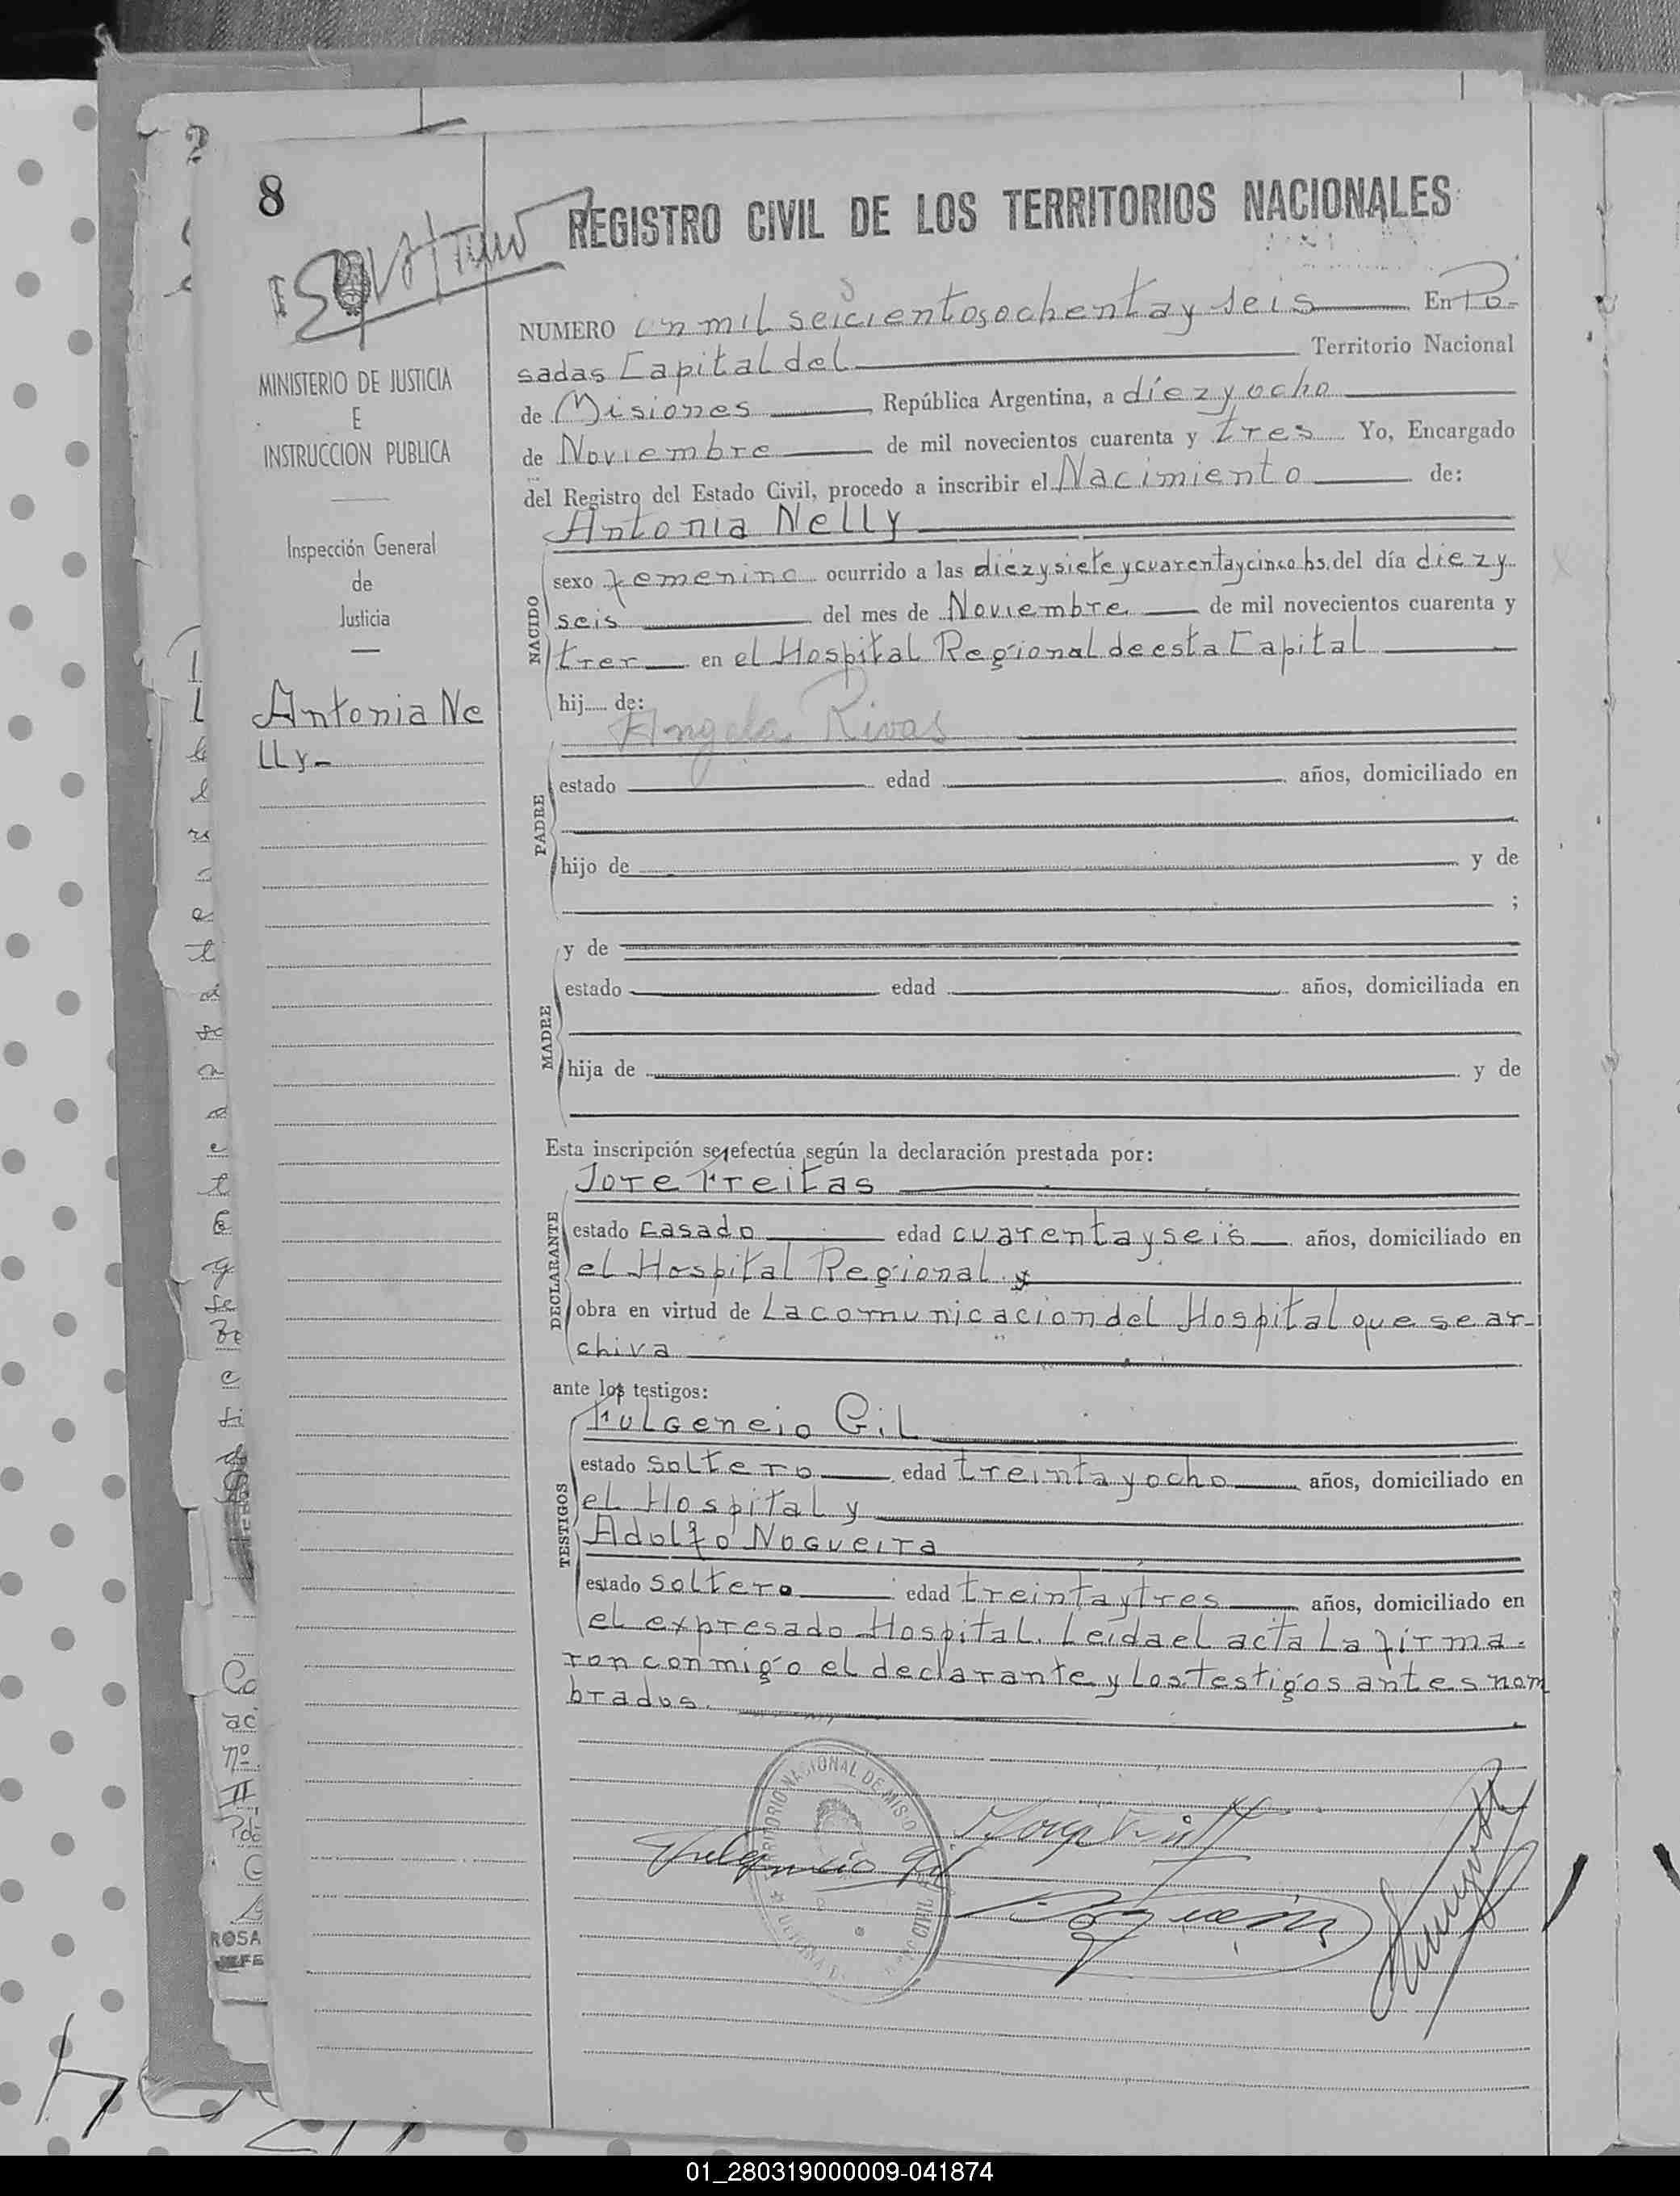 8
REGISTRO CIVIL DE LOS TERRITORIOS NACIONALES
MINISTERIO DE JUSTICIA
E
INSTRUCCION PUBLICA
Inspección General
de
Justicia
Antonia Ne
lly-
NUMERO un mil seicientos ochenta y seis En Po-
sadas Capital del Territorio Nacional
de Misiones República Argentina, a diez y ocho
de Noviembre de mil novecientos cuarenta y tres Yo, Encargado
del Registro del Estado Civil, procedo a inscribir el Nacimiento de:
Antonia Nelly
NACIDO
sexo femenino ocurrido a las diez y siete y cuarenta y cinco hs. del día diez y
seis del mes de Noviembre de mil novecientos cuarenta y
trer en el Hospital Regional de esta Capital
hij de:
Angela Rivas
PADRE
estado edad años, domiciliado en
hijo de y de
;
MADRE
y de
estado edad años, domiciliada en
hija de y de
Esta inscripción se efectúa según la declaración prestada por:
Jore Freitas
DECLARANTE
estado casado edad cuarenta y seis años, domiciliado en
el Hospital Regional y
obra en virtud de la comunicacion del Hospital que se ar-
chiva
ante los testigos:
Fulgencio Gil
TESTIGOS
estado soltero edad treinta y ocho años, domiciliado en
el Hospital y
Adolfo Nogueira
estado soltero edad treinta y tres años, domiciliado en
el expresado Hospital. Leida el acta la firma-
ron conmigo el declarante y los testigos antes nom
brados.
Fulgencio Gil
ROSA
JEFE
01_280319000009-041874